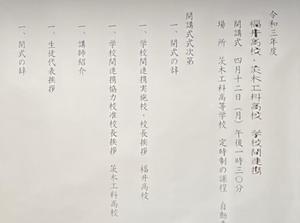 令和三年度
福井高校・茨木工科高校 学校間連携
開講式 四月十二日（月）午後一時三〇分
場所 茨木工科高等学校 定時制の課程
開講式式次第
一、開式の辞
一、学校間連携実施校・校長挨拶 福井高校
一、学校間連携協力校准校長挨拶 茨木工科高校
一、講師紹介
一、生徒代表挨拶
一、閉式の辞